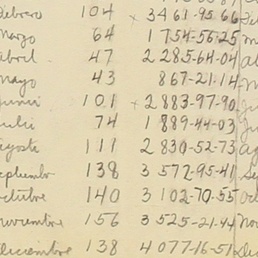 Febrero 104 x 3461-95 66
Marzo 64 1 754-56-25
Abril 47 2 285-64-04
Mayo 43 867-21-14
Junii 101 x 2 883-97-90
Julii 74 1 889-44-03
Agosto 111 2 830-52-73
Septiembre 138 3 572-95-41 Se
Octubre 140 3 102-70-55 Oc
Noviembre 156 3 525-21-44 Nov
Diciembre 138 4 077-16-51 Di